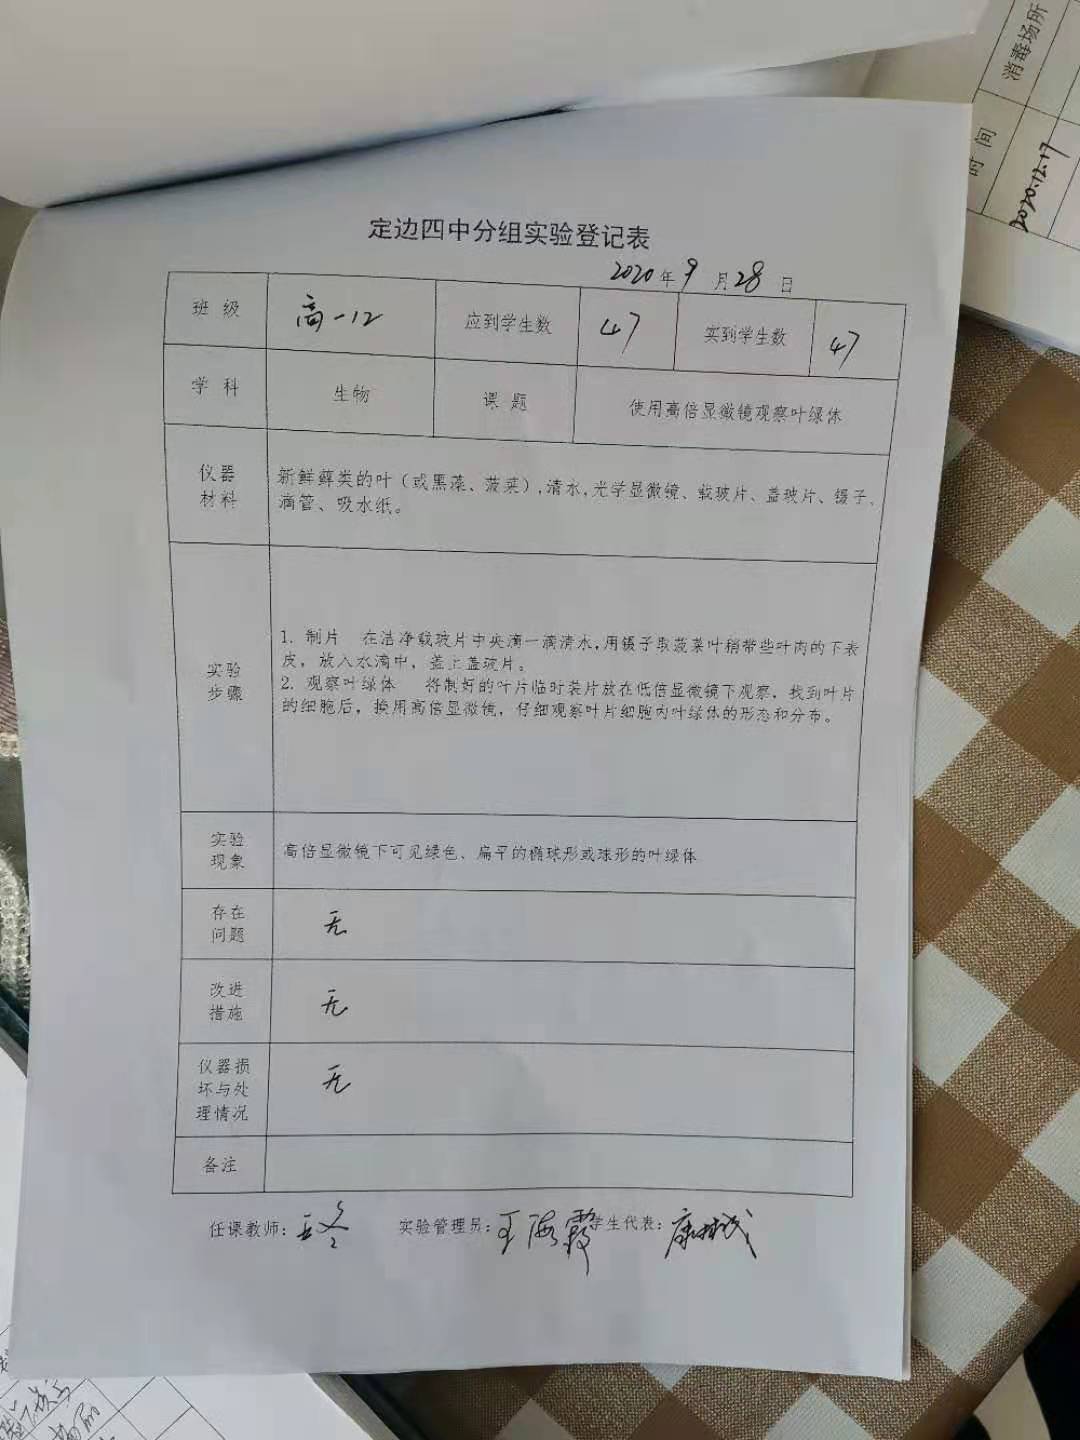 消毒场所
时间
2020.12.17
定边四中分组实验登记表
2020年9月28日
班 级 高一12 应到学生数 47 实到学生数 47
学 科 生物 课 题 使用高倍显微镜观察叶绿体
仪器
材料
新鲜藓类的叶（或黑藻、菠菜）,清水,光学显微镜、载玻片、盖玻片、镊子、
滴管、吸水纸。
实验
步骤
1. 制片 在洁净载玻片中央滴一滴清水,用镊子取菠菜叶稍带些叶肉的下表
皮，放入水滴中，盖上盖玻片。
2. 观察叶绿体 将制好的叶片临时装片放在低倍显微镜下观察，找到叶片
的细胞后，换用高倍显微镜，仔细观察叶片细胞内叶绿体的形态和分布。
实验
现象
高倍显微镜下可见绿色、扁平的椭球形或球形的叶绿体
存在
问题
无
改进
措施
无
仪器损
坏与处
理情况
无
备注
任课教师： 实验管理员：王海霞 学生代表：康